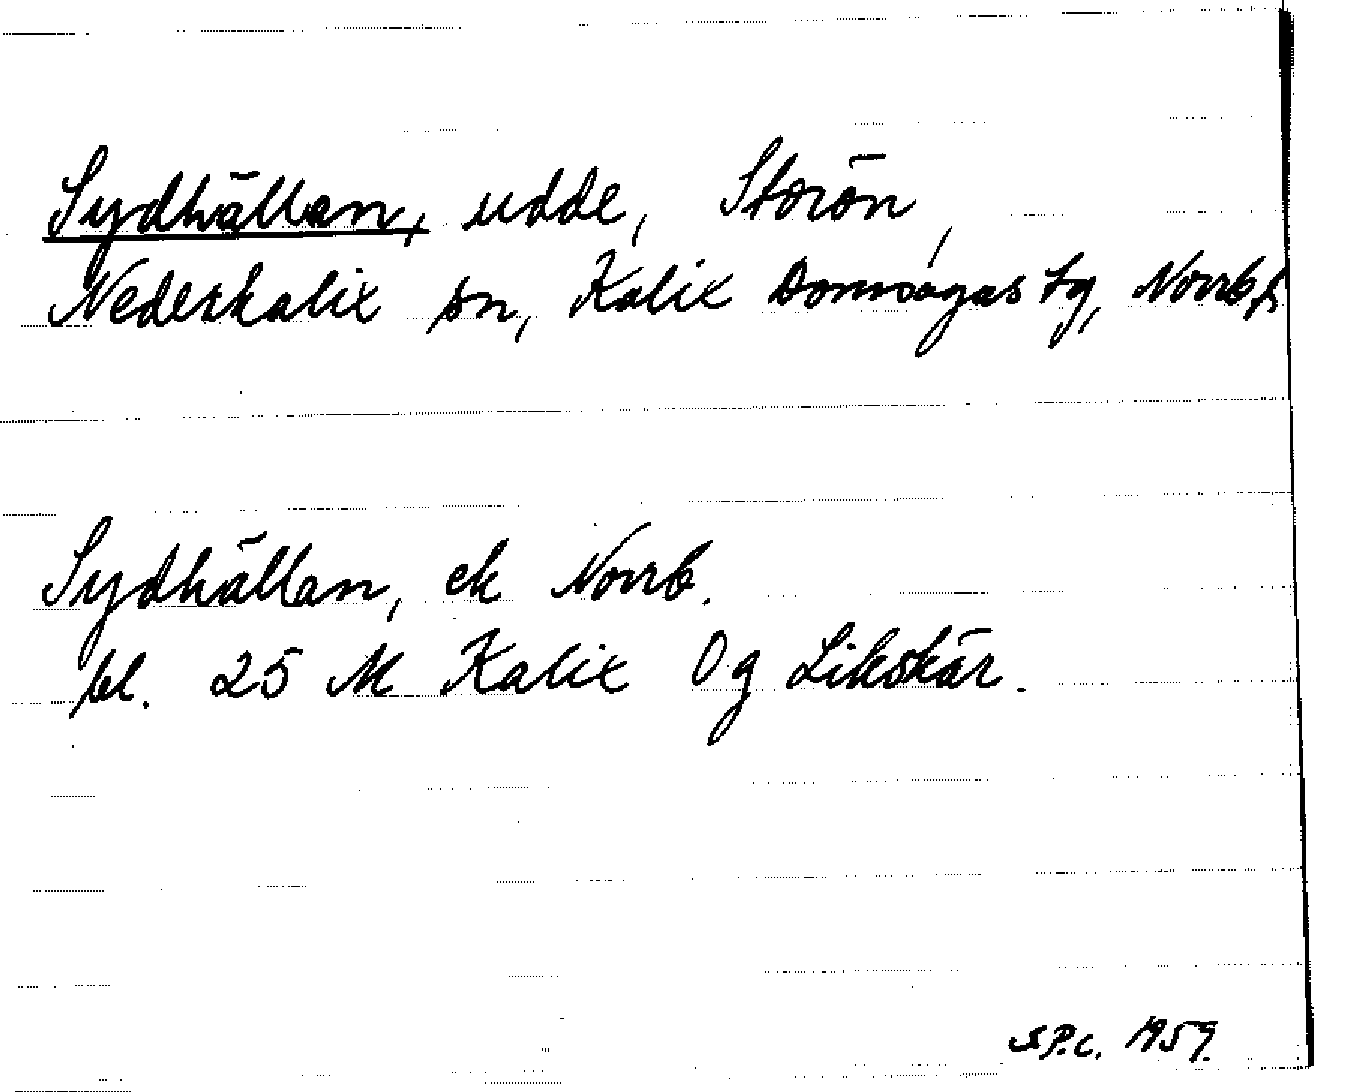 Sydhällan, udde, Storön,
Nederkalix sn, Kalix Domsagas tg, Norrb,
Sydhällan, ek Norrb.
bl. 25 M Kalix Og Likskär.
S.P.C. 1959.